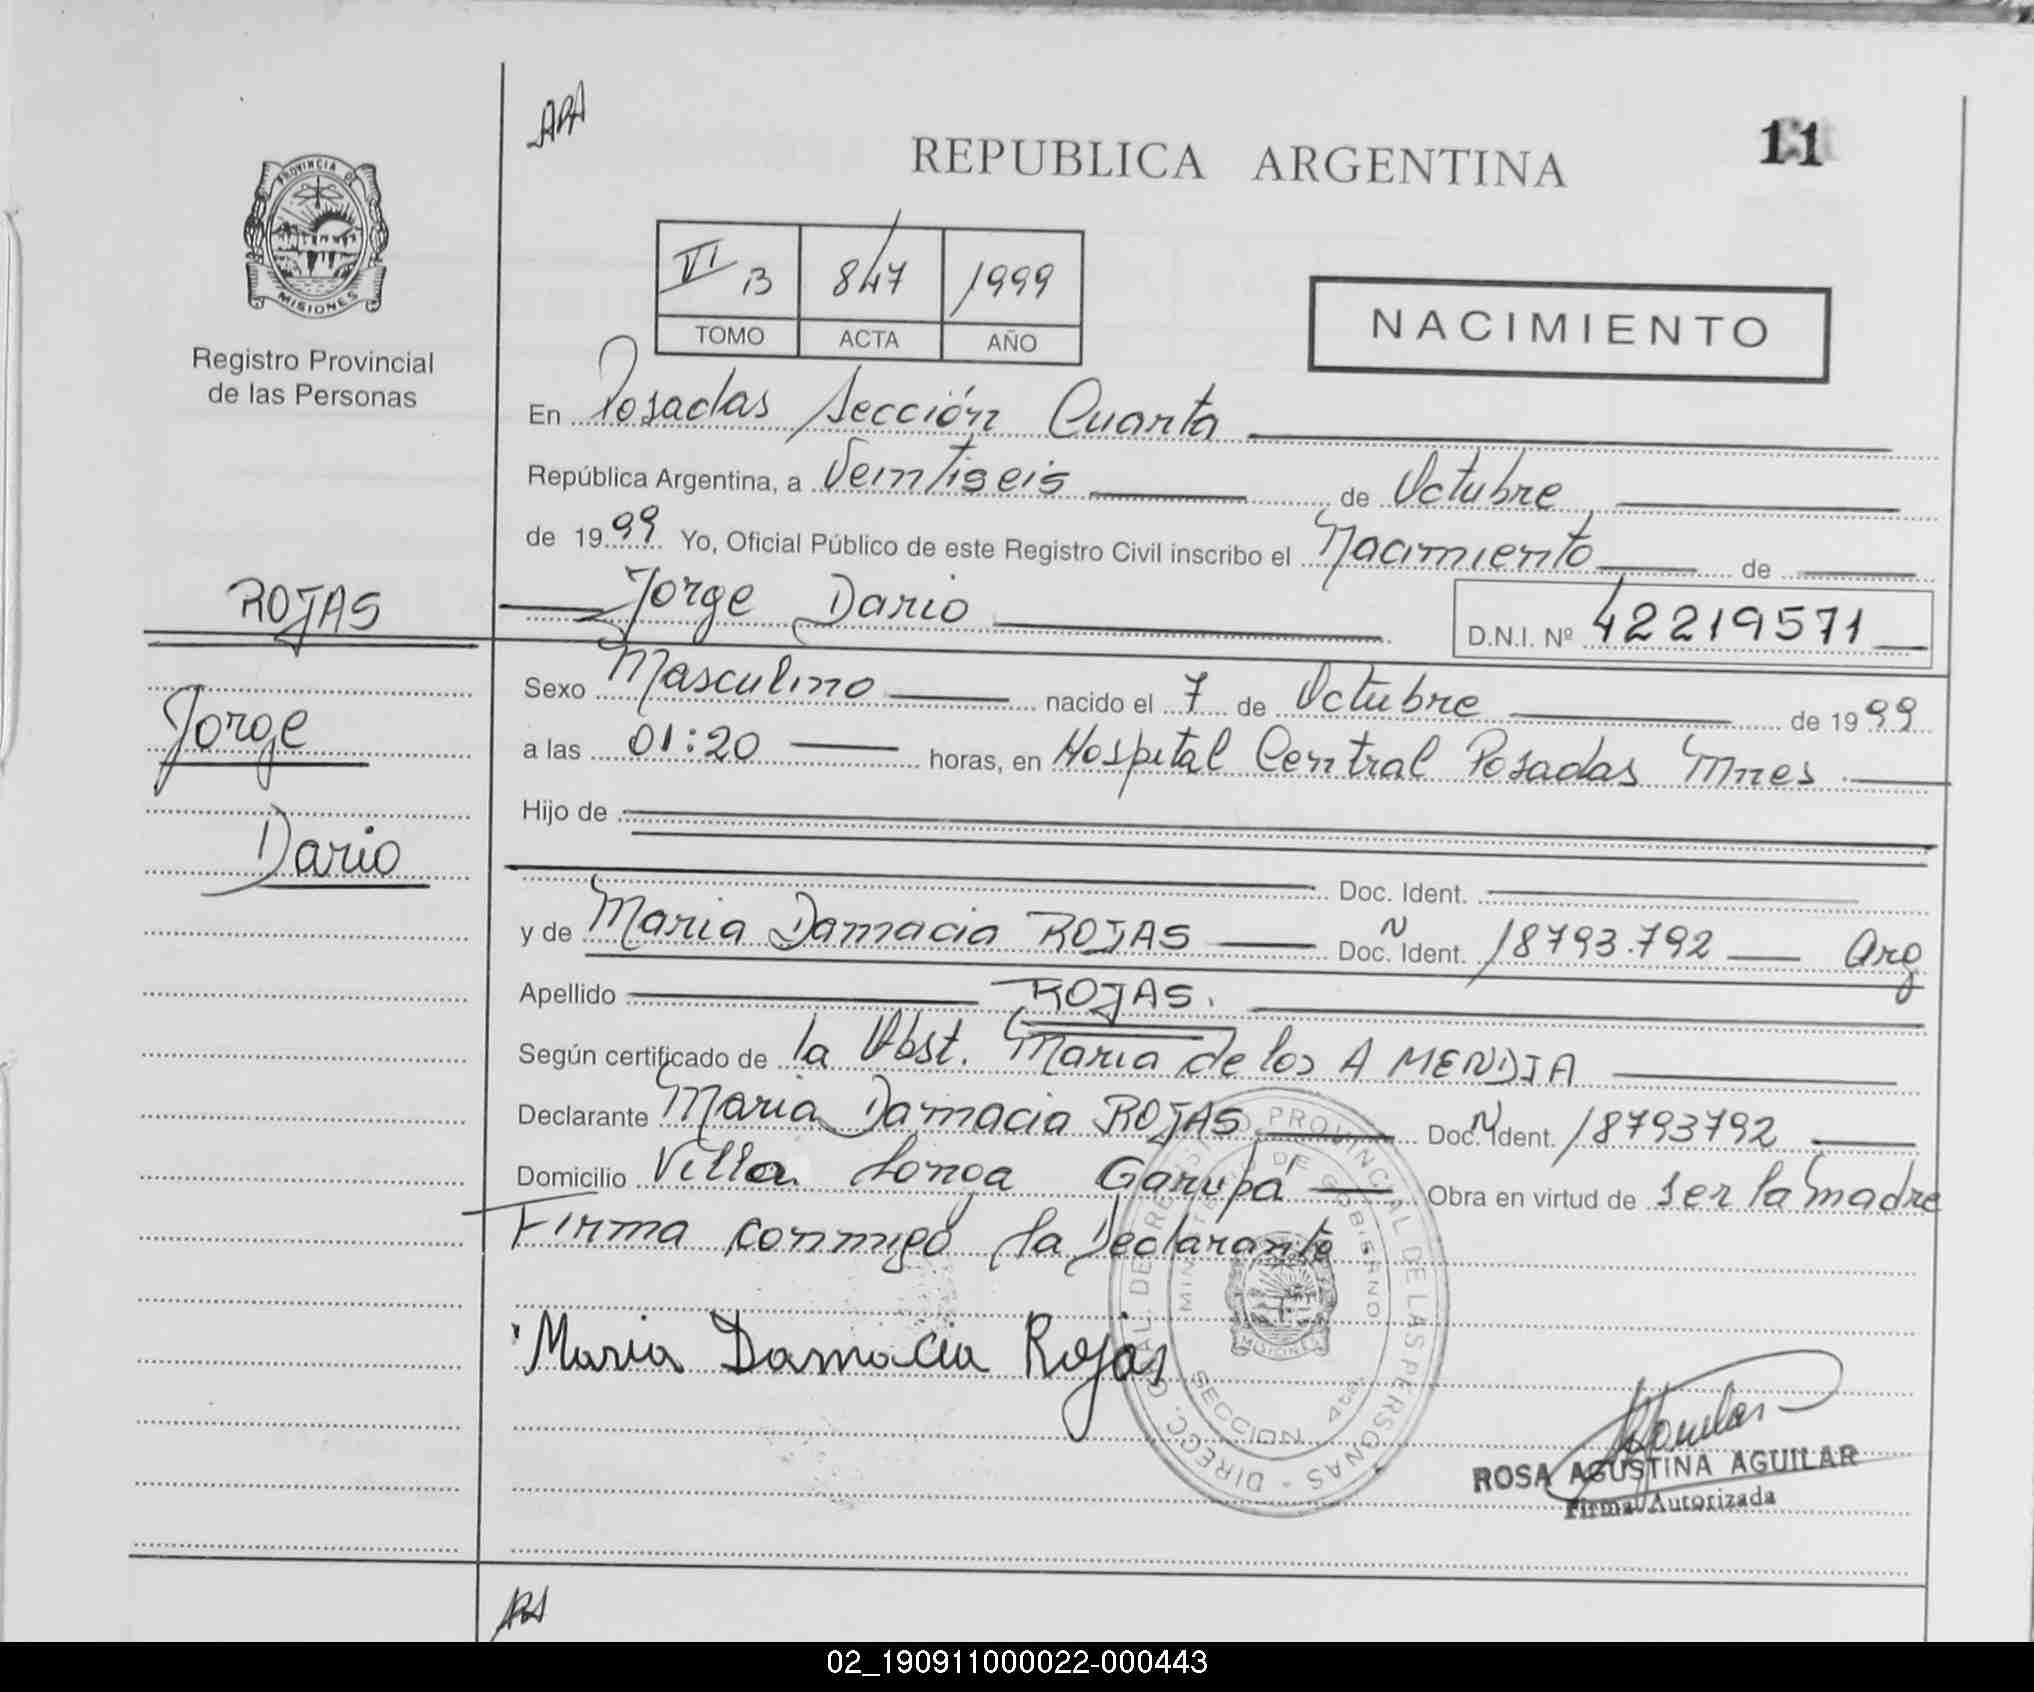 ARA
REPUBLICA ARGENTINA
11
PROVINCIA DE
MISIONES
Registro Provincial
de las Personas
VI B 847 1999
TOMO ACTA AÑO
NACIMIENTO
En Posadas Sección Cuarta
República Argentina, a Veintiseis de Octubre
de 1999 Yo, Oficial Público de este Registro Civil inscribo el Nacimiento de
ROJAS
Jorge Dario D.N.I. Nº 42219571
Sexo Masculino nacido el 7 de Octubre de 1999
Jorge
a las 01:20 horas, en Hospital Central Posadas Mnes.
Hijo de
Dario
Doc. Ident.
y de Maria Damacia ROJAS Doc. N Ident. 18793.792 Arg
Apellido ROJAS.
Según certificado de la Obst. Maria de los A MENDIA
Declarante Maria Damacia ROJAS Doc. N Ident. 18793792
Domicilio Villa Longa Garupá Obra en virtud de ser la madre
Firma conmigo la Declarante
Maria Damacia Rojas
DIRECC. GRAL. DE REGISTRO PROVINCIAL DE LAS PERSONAS -
MINISTERIO DE GOBIERNO
MISIONES
SECCION 4ta.
ROSA AGUSTINA AGUILAR
Firma Autorizada
ARA
02_190911000022-000443